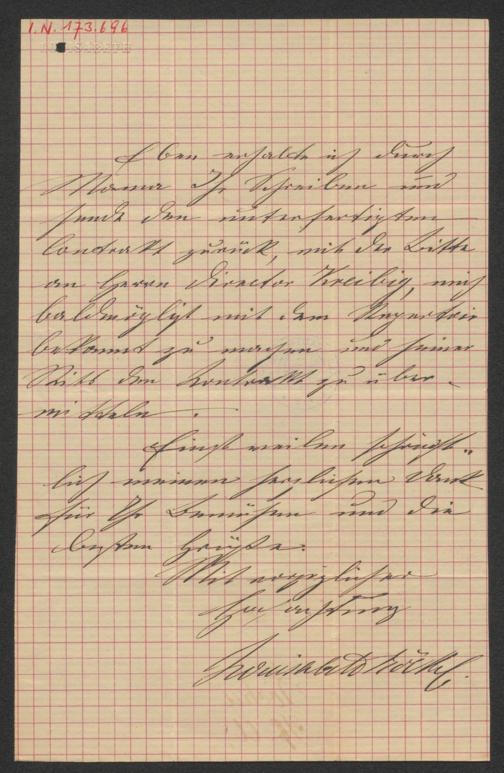 I.N. 173.696
Eben erhalte ich durch
Mama Ihr Schreiben und
sende den unterfertigten
Contrakt zurück, mit der Bitte
an Herrn Director Kreibig, mich
baldmöglichst mit dem Repertoir
bekannt zu machen und seiner
Seits den Kontrakt zu über-
mitteln.
Einst weilen schrift-
lich meinen herzlichen Dank
für Ihr Bemühen und die
besten Grüße.
Mit vorzüglicher
Hochachtung